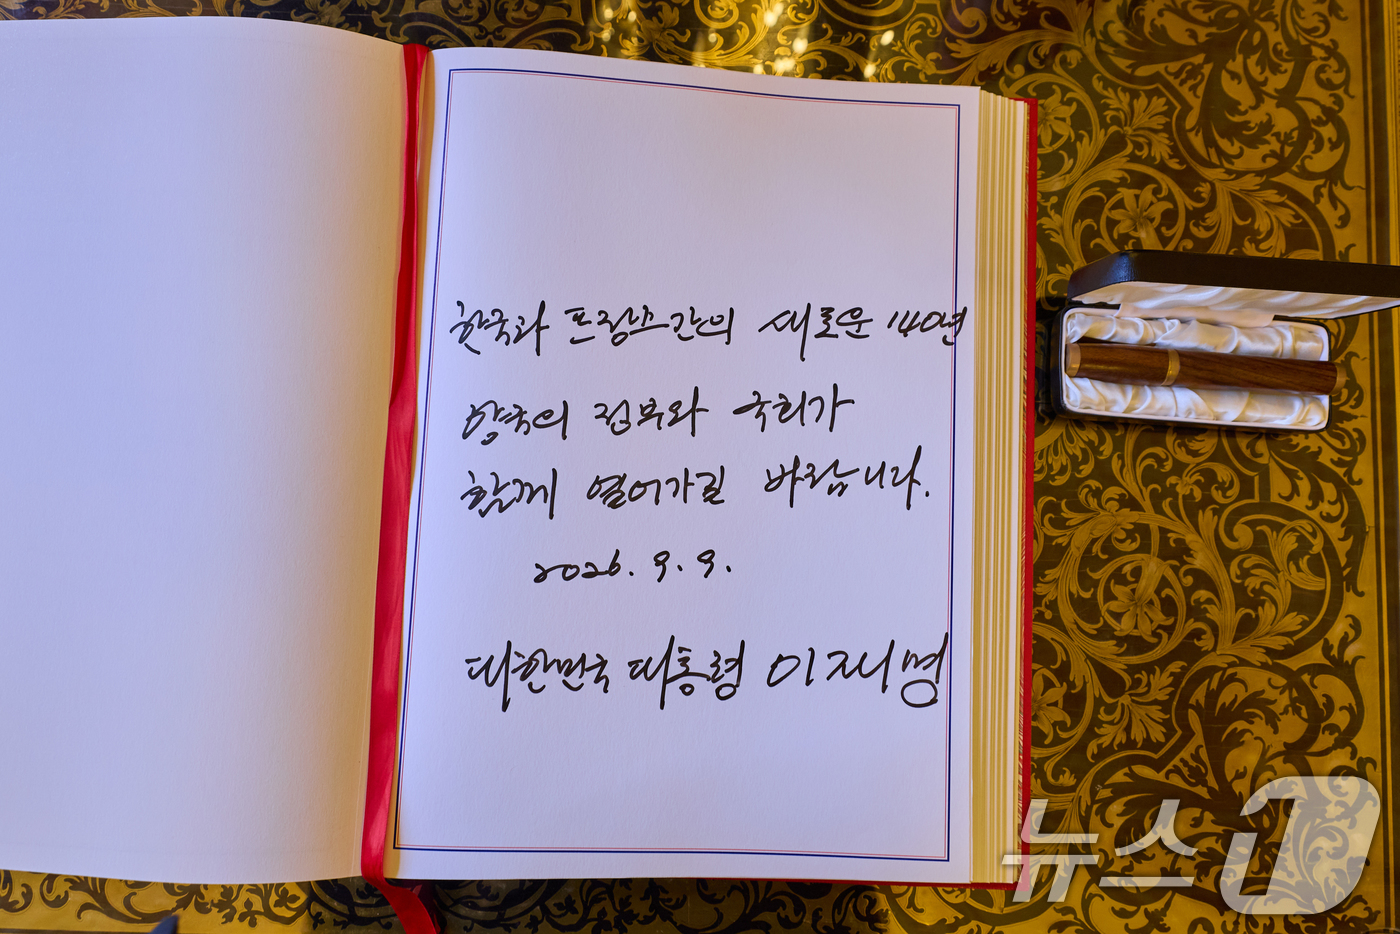 한국과 프랑스간의 새로운 140년
양국의 정부와 국회가
함께 열어가길 바랍니다.
2026. 9. 9.
대한민국 대통령 이재명
뉴스1